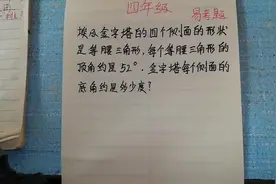 四年级
易考题
埃及金字塔的四个侧面的形状
是等腰三角形,每个等腰三角形的
顶角约是52°.金字塔每个侧面的
底角约是多少度?